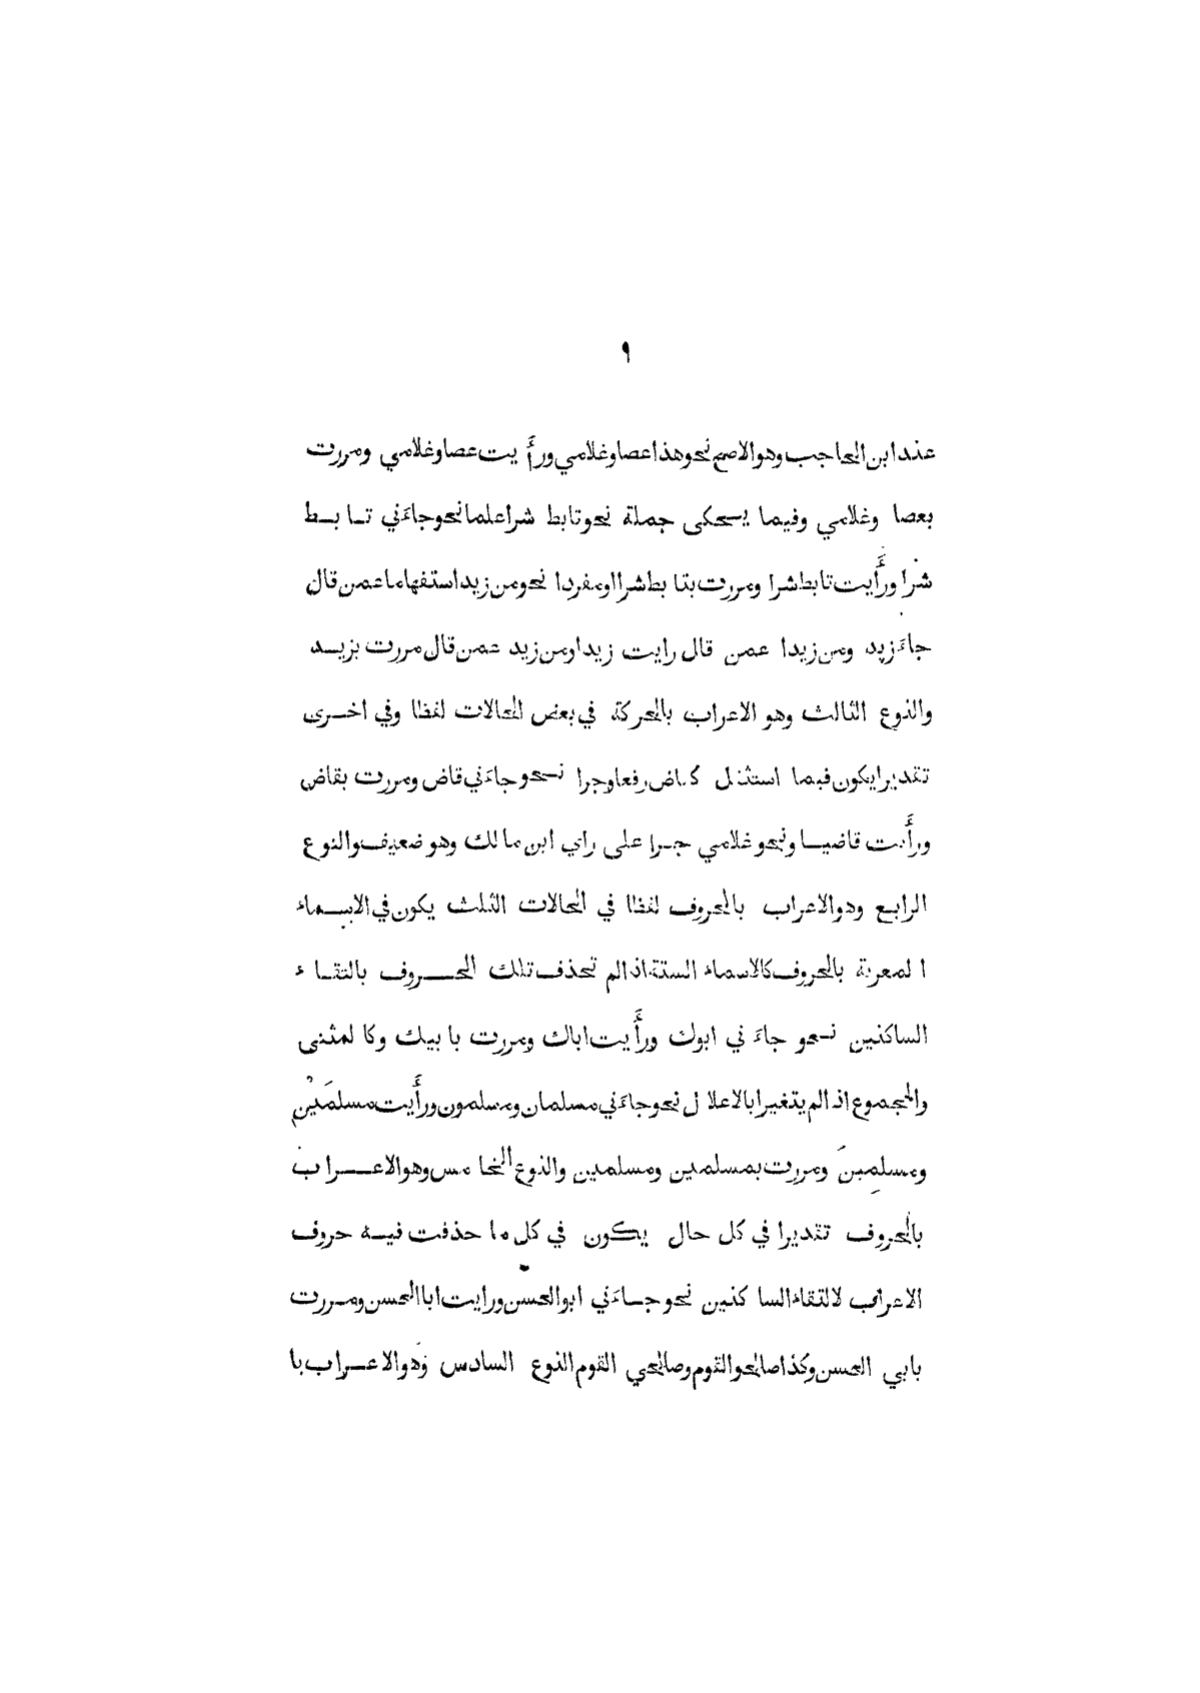 ٩
عند ابن الحاجب وهو الاصح نحو هذا عصا وغلامي ورأيت عصا وغلامي ومررت
بعصا وغلامي وفيما يحكى جملة نحو تابط شرا علما نحو جاءني تابط
شرا ورأيت تابط شرا ومررت بتابط شرا او مفردا نحو من زيد استفهاما عمن قال
جاء زيد ومن زيدا عمن قال رايت زيدا ومن زيد عمن قال مررت بزيد
والنوع الثالث وهو الاعراب بالحركة في بعض الحالات لفظا وفي اخرى
تقديرا يكون فيما استثقل كقاض رفعا وجرا نحو جاءني قاض ومررت بقاض
ورأيت قاضيا ونحو غلامي جرا على راي ابن مالك وهو ضعيف والنوع
الرابع وهو الاعراب بالحروف لفظا في الحالات الثلث يكون في الاسماء
المعربة بالحروف كالاسماء الستة اذا لم تحذف تلك الحروف بالتقاء
الساكنين نحو جاءني ابوك ورأيت اباك ومررت بابيك وكالمثنى
والمجموع اذا لم يتغيرا بالاعلال نحو جاءني مسلمان ومسلمون ورأيت مسلمَيْن
ومسلمِينَ ومررت بمسلمين ومسلمين والنوع الخامس وهو الاعراب
بالحروف تقديرا في كل حال يكون في كل ما حذفت فيه حروف
الاعراب لالتقاء الساكنين نحو جاءني ابو الحسن ورايت ابا الحسن ومررت
بابي الحسن وكذا صالحو القوم وصالحي القوم النوع السادس وهو الاعراب با